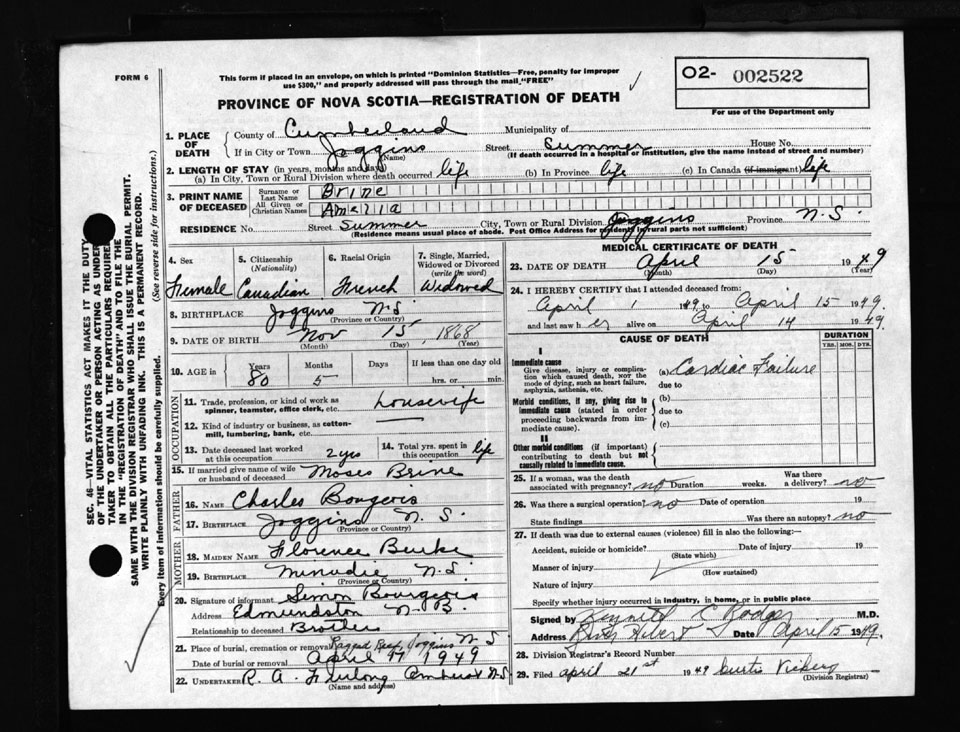 FORM 6
This form if placed in an envelope, on which is printed "Dominion Statistics—Free, penalty for improper
use $300," and properly addressed will pass through the mail "FREE"
O2- 002522
For use of the Department only
PROVINCE OF NOVA SCOTIA—REGISTRATION OF DEATH
1. PLACE OF DEATH County of Cumberland Municipality of
If in City or Town Joggins (Name) Street Summer House No.
(If death occurred in a hospital or institution, give the name instead of street and number)
2. LENGTH OF STAY (in years, months and days)
(a) In City, Town or Rural Division where death occurred life (b) In Province life (c) In Canada (if immigrant) life
3. PRINT NAME OF DECEASED
Surname or Last Name Brine
All Given or Christian Names Amelia
RESIDENCE No. Street Summer City, Town or Rural Division Joggins Province N.S.
(Residence means usual place of abode. Post Office Address for residents in rural parts not sufficient)
4. Sex Female
5. Citizenship (Nationality) Canadian
6. Racial Origin French
7. Single, Married, Widowed or Divorced (write the word) Widowed
8. BIRTHPLACE Joggins N.S.
(Province or Country)
9. DATE OF BIRTH Nov 15, 1868
(Month) (Day) (Year)
10. AGE in Years 80 Months 5 Days If less than one day old hrs. or min.
OCCUPATION
11. Trade, profession, or kind of work as spinner, teamster, office clerk, etc. Housewife
12. Kind of industry or business, as cotton-mill, lumbering, bank, etc.
13. Date deceased last worked at this occupation 2 yrs
14. Total yrs. spent in this occupation life
15. If married give name of wife or husband of deceased Moses Brine
FATHER
16. NAME Charles Bougeois
17. BIRTHPLACE Joggins N.S.
(Province or Country)
MOTHER
18. MAIDEN NAME Florence Burke
19. BIRTHPLACE Minudie N.S.
(Province or Country)
20. Signature of informant Simon Bourgeois
Address Edmundston N.B.
Relationship to deceased Brother
21. Place of burial, cremation or removal Ragged Reef, Joggins N.S.
Date of burial or removal April 17 1949
22. UNDERTAKER R. A. Furlong Amherst N.S.
(Name and address)
MEDICAL CERTIFICATE OF DEATH
23. DATE OF DEATH April 15 1949
(Month) (Day) (Year)
24. I HEREBY CERTIFY that I attended deceased from:
April 1 1949 to April 15 1949
and last saw her alive on April 14 1949.
CAUSE OF DEATH
DURATION
YRS. MOS. DYS.
I
Immediate cause
Give disease, injury or complication which caused death, not the mode of dying, such as heart failure, asphyxia, asthenia, etc.
(a) Cardiac Failure
due to
Morbid conditions, if any, giving rise to immediate cause (stated in order proceeding backwards from immediate cause).
(b)
due to
(c)
II
Other morbid conditions (if important) contributing to death but not causally related to immediate cause.
25. If a woman, was the death associated with pregnancy? no Duration weeks. Was there a delivery? no
26. Was there a surgical operation? no Date of operation 19
State findings Was there an autopsy? no
27. If death was due to external causes (violence) fill in also the following:—
Accident, suicide or homicide? Date of injury 19
(State which)
Manner of injury
(How sustained)
Nature of injury
Specify whether injury occurred in industry, in home, or in public place
Signed by C Rodger M.D.
Address River Hebert Date April 15 1949.
28. Division Registrar's Record Number
29. Filed april 21st 1949 Curtis Vickery
(Division Registrar)
SEC. 46—VITAL STATISTICS ACT MAKES IT THE DUTY
OF THE UNDERTAKER OR PERSON ACTING AS UNDER-
TAKER TO OBTAIN ALL THE PARTICULARS REQUIRED
IN THE "REGISTRATION OF DEATH" AND TO FILE THE
SAME WITH THE DIVISION REGISTRAR WHO SHALL ISSUE THE BURIAL PERMIT.
WRITE PLAINLY WITH UNFADING INK. THIS IS A PERMANENT RECORD.
Every item of information should be carefully supplied. (See reverse side for instructions.)